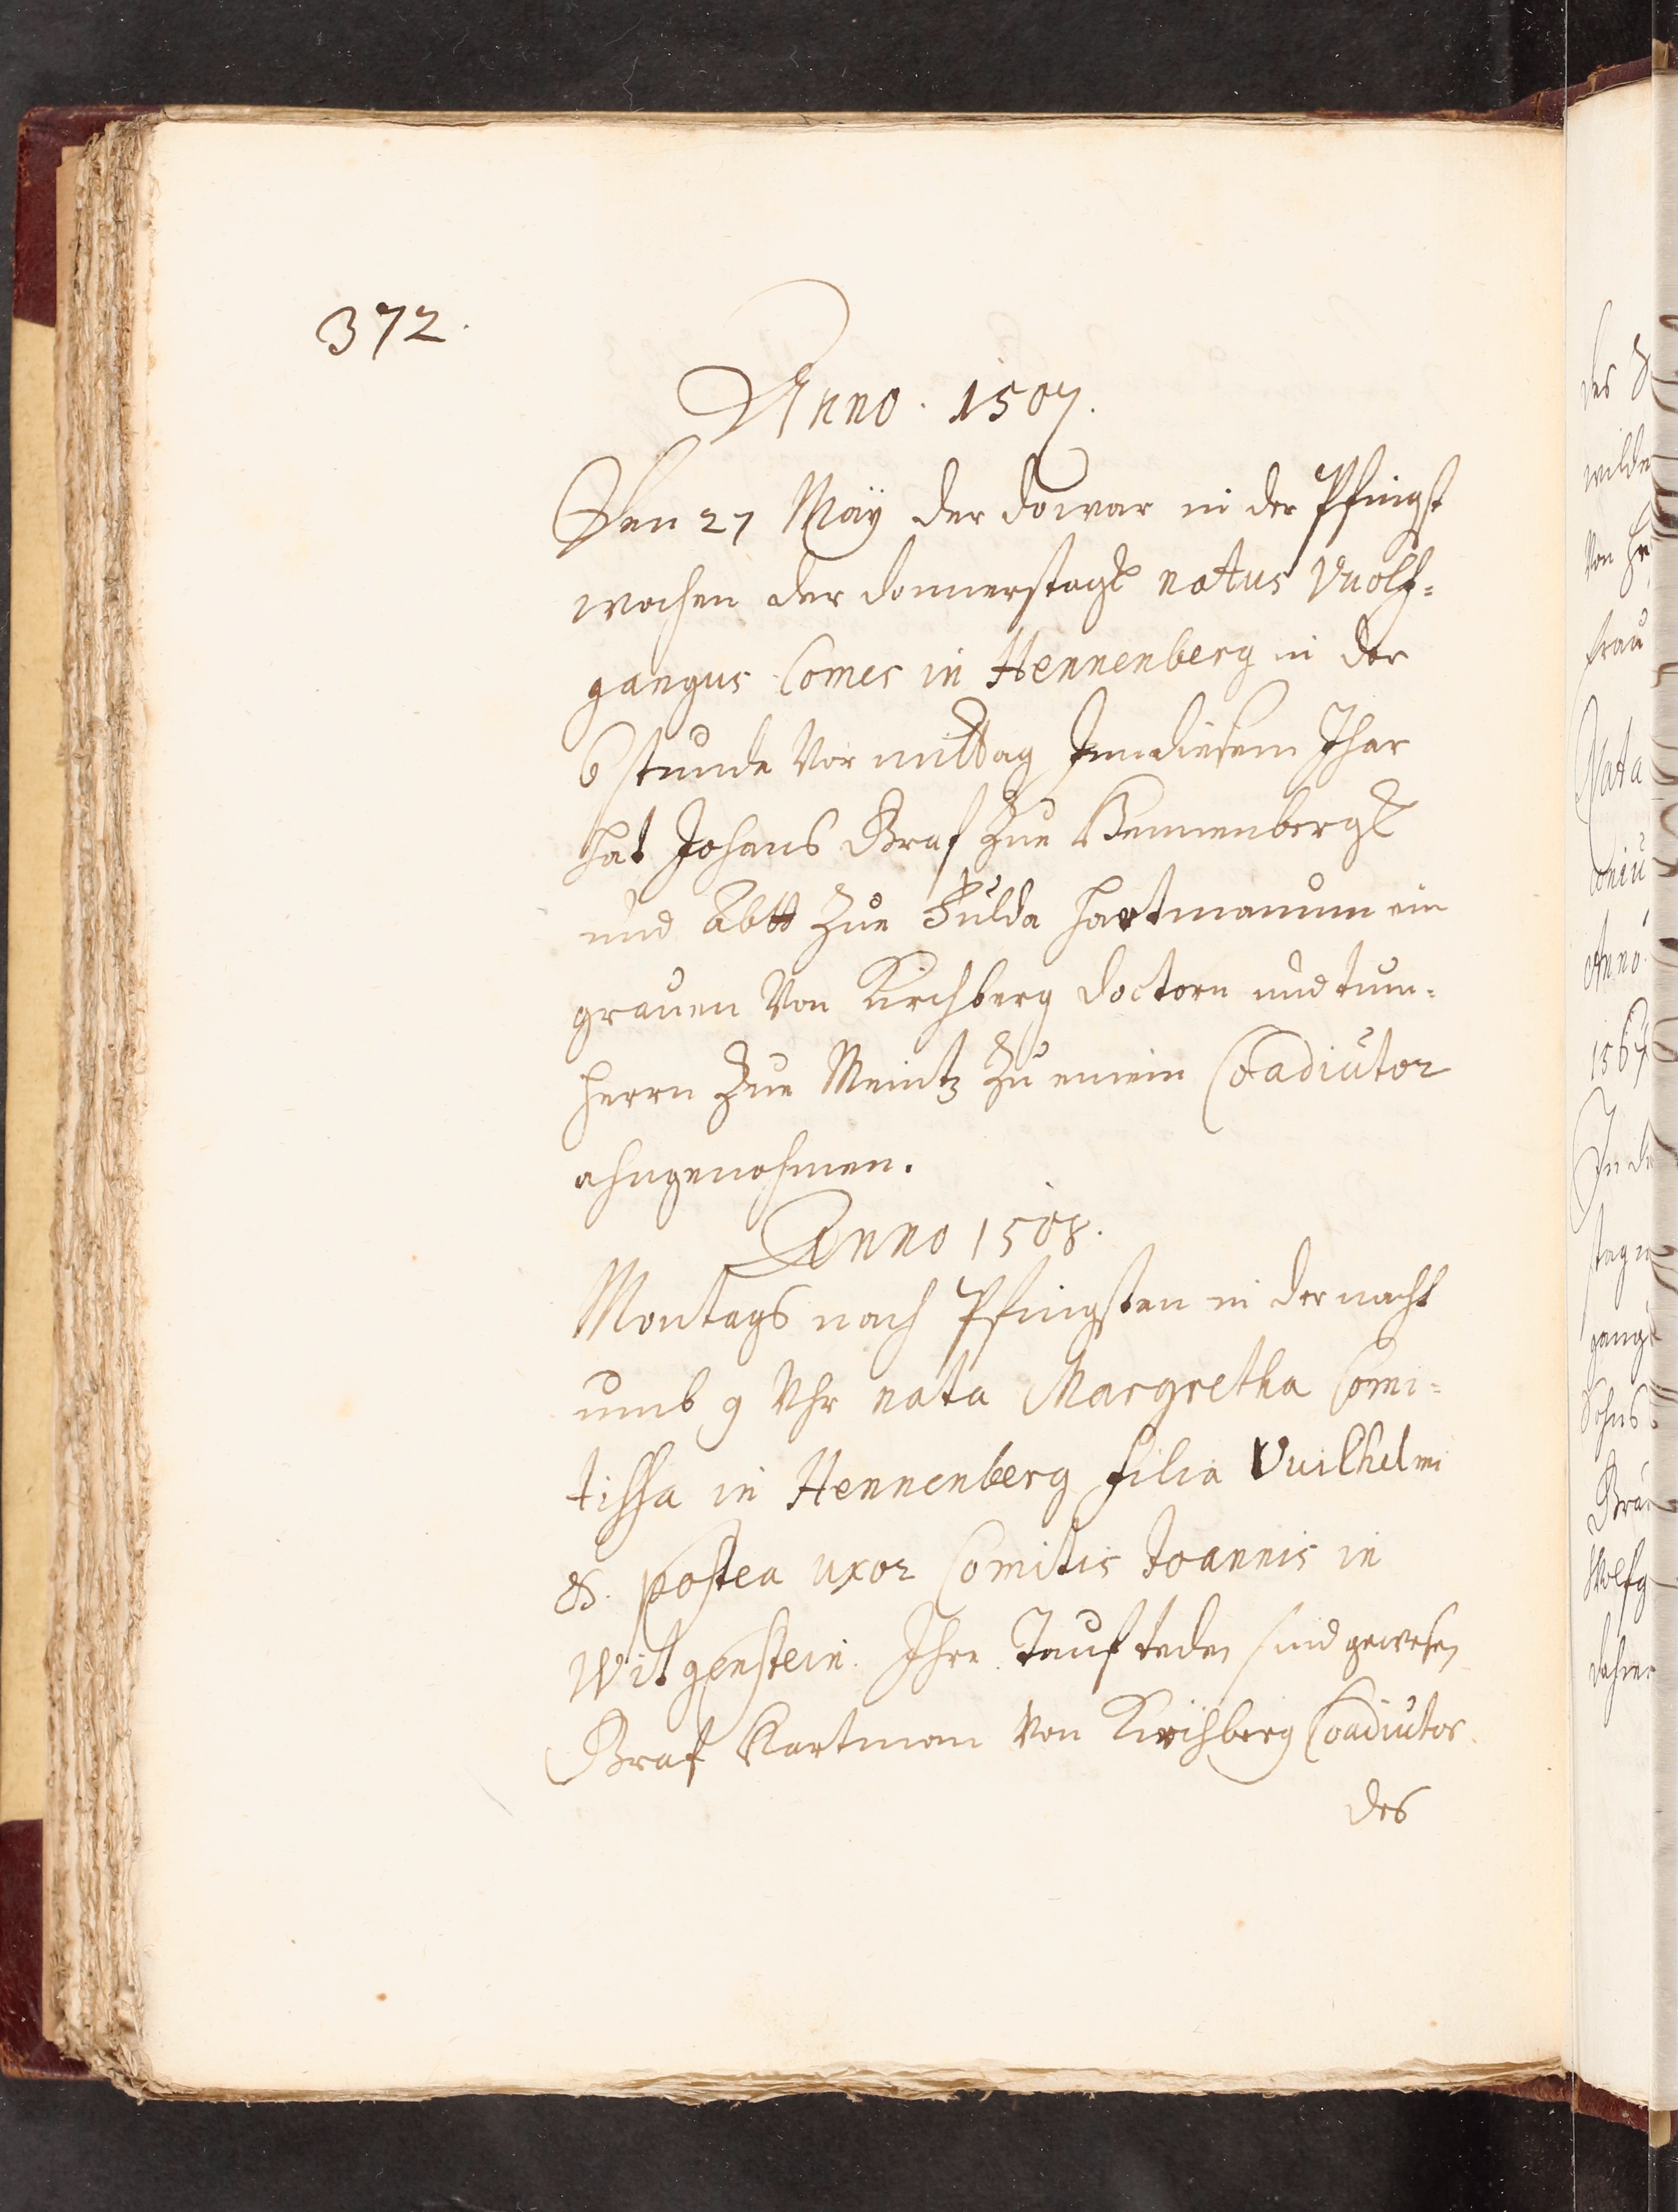 372.
Anno. 1507.
Den 27 Maÿ der do war in der Pfingst
wochen der donnerstagk natus Vuolf=
gangus Comes in Hennenberg in der
6 stunde Vor mittag Inn diesem Ihar
hat Johans Graf zue Hennenbergk
und Abtt zue Fulda Hartmanum ein
grauen Von Kirchberg doctorn und tum=
herrn zue Meintz zu einem Coadiutor
ahngenohmen.
Anno 1508.
Montags nach Pfingsten in der nacht
umb 9 Vhr nata Margretha Comi=
tissa in Hennenberg filia Vuilhelmi
&. postea uxor Comitis Joannis in
Witgenstein. Ihre Tauf toden sind gewesen
Graf Hartman Von Kirchberg Coadiutor
des